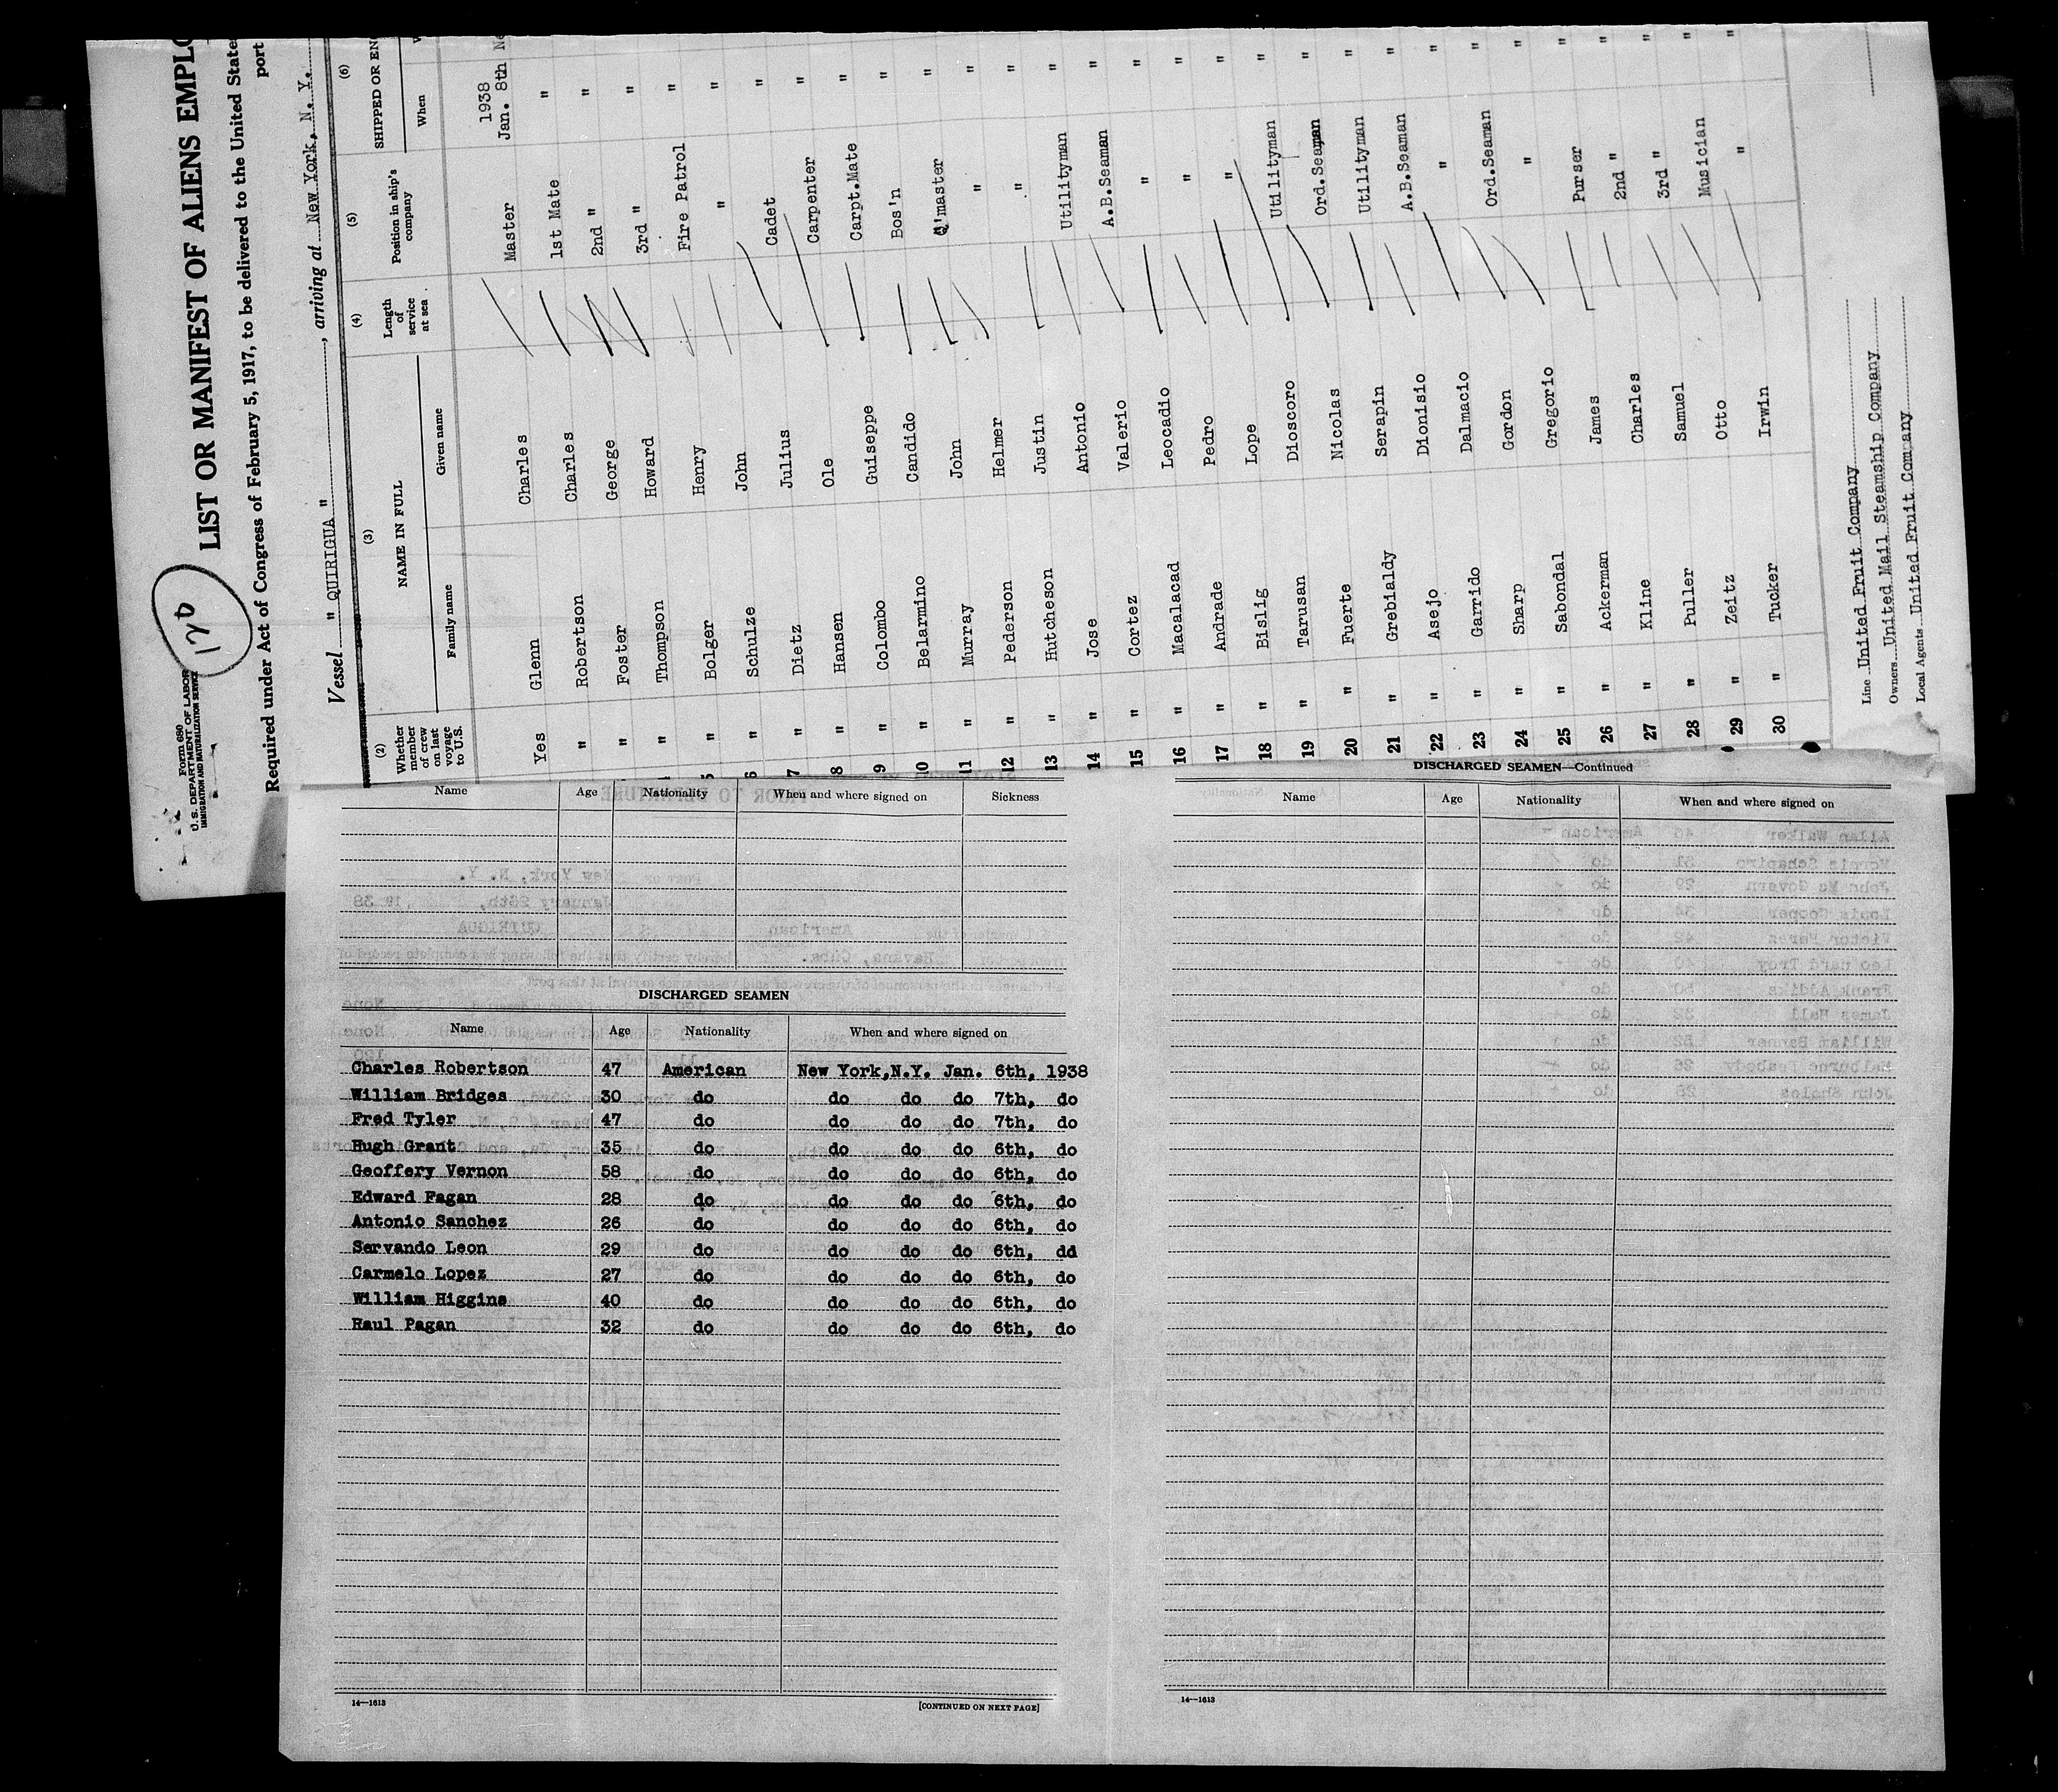 Form 680
U. S. DEPARTMENT OF LABOR
IMMIGRATION AND NATURALIZATION SERVICE
120
LIST OR MANIFEST OF ALIENS EMPLO
Required under Act of Congress of February 5, 1917, to be delivered to the United State
port
Vessel " QUIRIGUA " , arriving at New York, N. Y.
(2) (3) (4) (5) (6)
Whether member of crew on last voyage to U.S. NAME IN FULL Length of service at sea Position in ship's company SHIPPED OR EN
Family name Given name When
1938
Yes Glenn Charles Master Jan. 8th Ne
" Robertson Charles 1st Mate " "
" Foster George 2nd " " "
" Thompson Howard 3rd " " "
5 " Bolger Henry Fire Patrol " "
6 " Schulze John " " "
7 " Dietz Julius Cadet " "
8 " Hansen Ole Carpenter " "
9 " Colombo Guiseppe Carpt.Mate " "
10 " Belarmino Candido Bos'n " "
11 " Murray John Q'master " "
12 " Pederson Helmer " " "
13 " Hutcheson Justin " " "
14 " Jose Antonio Utilityman " "
15 " Cortez Valerio A.B.Seaman " "
16 " Macalacad Leocadio " " "
17 " Andrade Pedro " " "
18 " Bislig Lope " " "
19 " Tarusan Dioscoro Utilityman " "
20 " Fuerte Nicolas Ord.Seaman " "
21 " Grebialdy Serapin Utilityman " "
22 " Asejo Dionisio A.B.Seaman " "
23 " Garrido Dalmacio " " "
24 " Sharp Gordon Ord.Seaman " "
25 " Sabondal Gregorio " " "
26 " Ackerman James Purser " "
27 " Kline Charles 2nd " " "
28 " Puller Samuel 3rd " " "
29 " Zeitz Otto Musician " "
30 " Tucker Irwin " " "
Line United Fruit Company
Owners United Mail Steamship Company
Local Agents United Fruit Company
Name Age Nationality When and where signed on Sickness
DISCHARGED SEAMEN
Name Age Nationality When and where signed on
Charles Robertson 47 American New York,N.Y. Jan. 6th, 1938
William Bridges 30 do do do do 7th, do
Fred Tyler 47 do do do do 7th, do
Hugh Grant 35 do do do do 6th, do
Geoffery Vernon 58 do do do do 6th, do
Edward Fagan 28 do do do do 6th, do
Antonio Sanchez 26 do do do do 6th, do
Servando Leon 29 do do do do 6th, dd
Carmelo Lopez 27 do do do do 6th, do
William Higgins 40 do do do do 6th, do
Raul Pagan 32 do do do do 6th, do
14—1613
[CONTINUED ON NEXT PAGE]
DISCHARGED SEAMEN—Continued
Name Age Nationality When and where signed on
14—1613